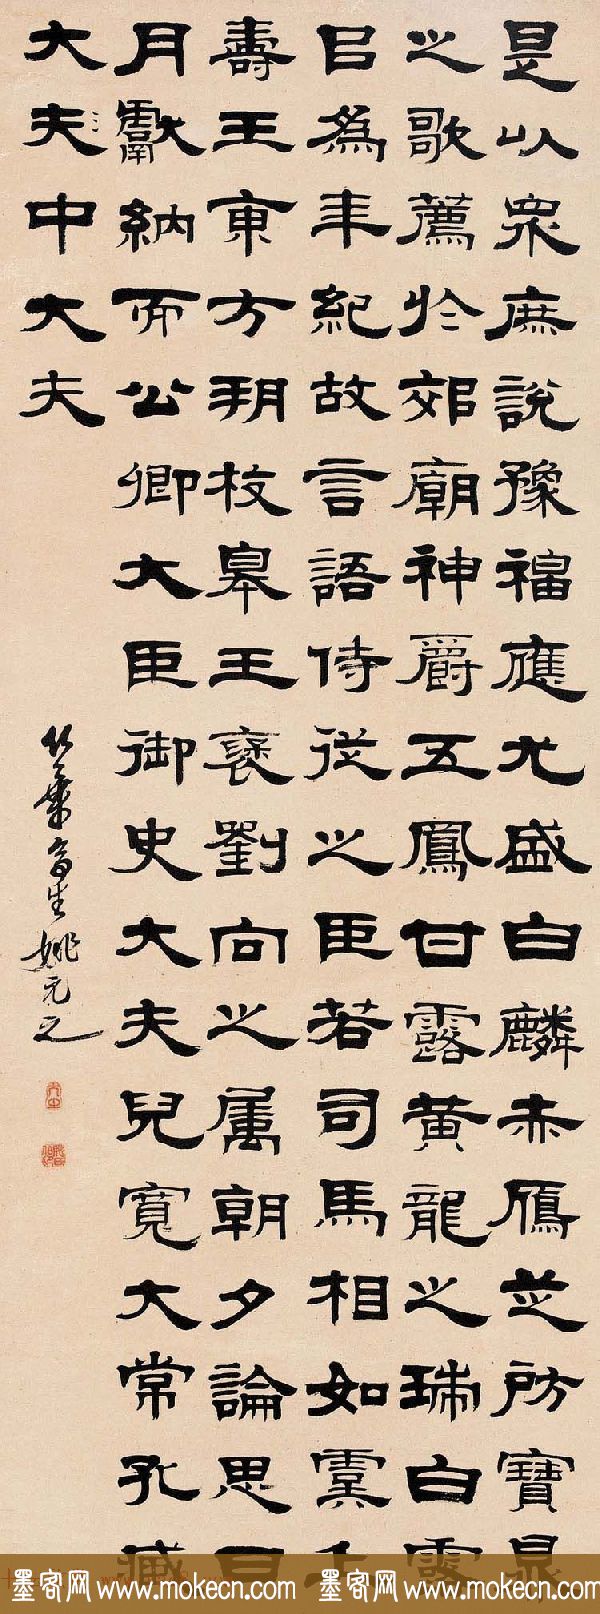 是以眾庶說豫福應尤盛白麟赤鴈芝房寶鼎
之歌薦於郊廟神爵五鳳甘露黃龍之瑞白
㠯為年紀故言語侍從之臣若司馬相如虞丘
壽王東方朔枚皋王褒劉向之屬朝夕論思日
月獻納而公卿大臣御史大夫兒寬大常孔臧
大夫中大夫
竹葉亭生姚元之
墨客网 www.mokecn.com 墨客网 www.mokecn.com